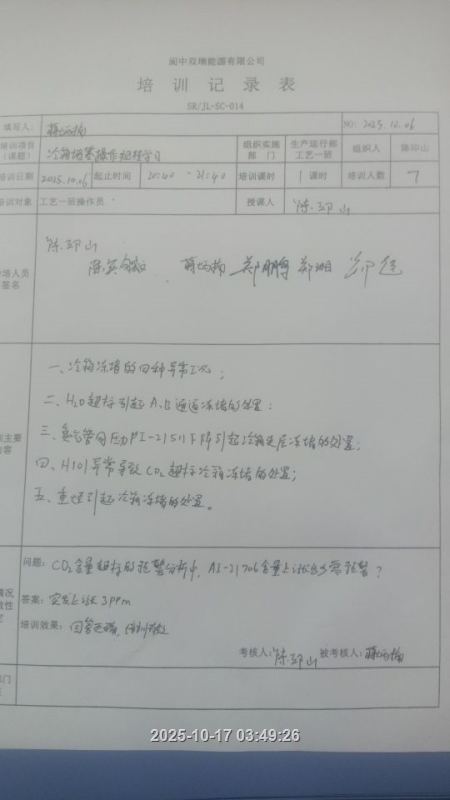 阆中双瑞能源有限公司
培训记录表
SR/JL-SC-014
填写人： NO：2025.12.06
培训项目（课题） 冷箱堵塞操作规程学习 组织实施部门 生产运行部工艺一班 组织人 陈邛山
培训日期 2025.10.16 起止时间 20:40-21:40 培训课时 1课时 培训人数 7
培训对象 工艺一班操作员 授课人 陈邛山
参培人员签名
陈邛山
郑鹏 郑湘
一、冷箱冻堵的四种异常工况；
二、H2O超标引起A、B通道冻堵的处置；
三、氮气管网压力PI-21511下降引起冷箱夹层冻堵的处置；
四、H101异常导致CO2超标冷箱冻堵的处置；
五、重烃引起冷箱冻堵的处置。
问题：CO2含量超标的预警分析中，AI-21706含量上涨多少需预警？
答案：突发上涨3ppm
培训效果：回答正确，
考核人：陈邛山 被考核人：
2025-10-17 03:49:26